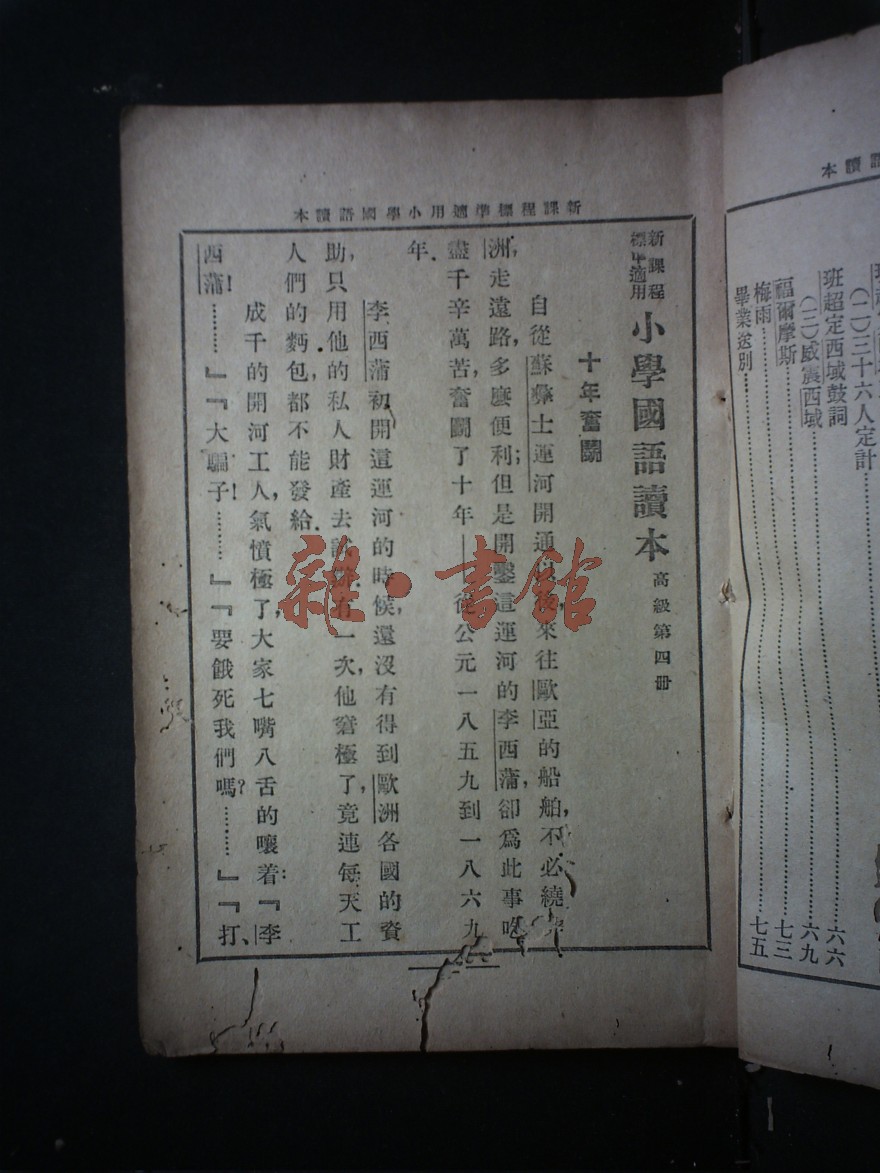 新課程標準適用小學國語讀本
新課程
標準適用
小學國語讀本 高級第四冊
十年奮鬭
自從蘇彝士運河開通以後，來往歐亞的船舶，不必繞
洲，走遠路，多麼便利；但是開鑿這運河的李西蒲，卻爲此事吃
盡千辛萬苦，奮鬭了十年——從公元一八五九到一八六九
年。
李西蒲初開這運河的時候，還沒有得到歐洲各國的資
助，只用他的私人財產去試辦。有一次，他窘極了，竟連每天工
人們的麪包，都不能發給。
成千的開河工人，氣憤極了，大家七嘴八舌的嚷着：『李
西蒲！………』『大騙子！………』『要餓死我們嗎？………』『打、
雜·書館
讀本
(二)三十六人定計
班超定西域鼓詞 六六
(三)威震西域 六九
福爾摩斯 七三
梅雨
畢業送別 七五